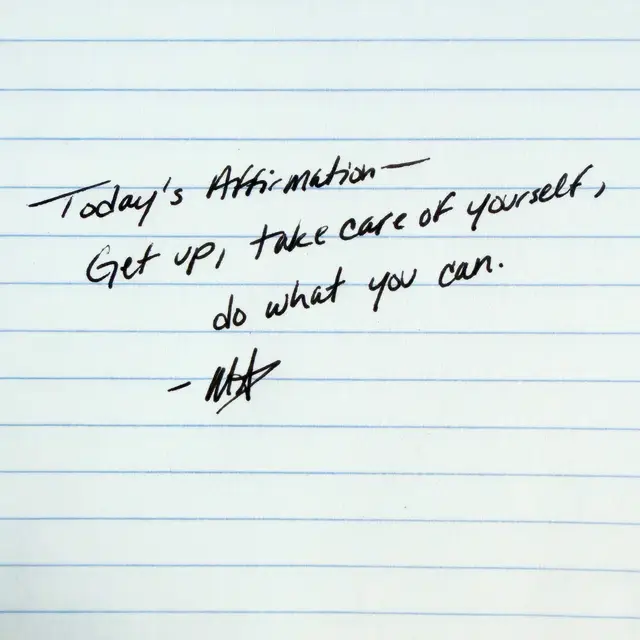 Today's Affirmation—
Get up, take care of yourself,
do what you can.